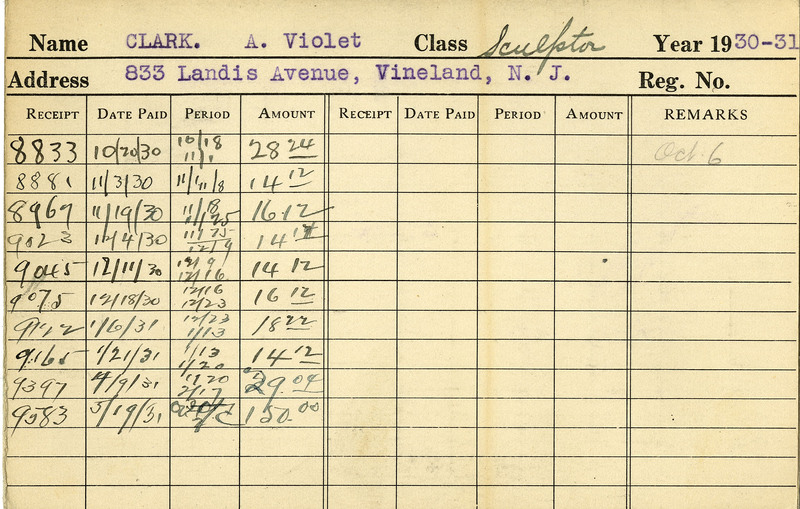 Name CLARK. A. Violet Class Sculptor Year 1930-31
Address 833 Landis Avenue, Vineland, N. J. Reg. No.
RECEIPT DATE PAID PERIOD AMOUNT RECEIPT DATE PAID PERIOD AMOUNT REMARKS
8833 10/20/30 10/18 11/1 28 24 Oct. 6
8881 11/3/30 11/1 11/8 14 12
8969 11/19/30 11/18 11/25 16 12
9023 12/4/30 11/25 12/9 14 12
9045 12/11/30 12/9 12/16 14 12
9075 12/18/30 12/16 12/23 16 12
9122 1/6/31 12/23 1/13 18 22
9165 1/21/31 1/13 1/20 14 12
9397 4/9/31 1/20 2/17 29.04
9583 5/19/31 150.00